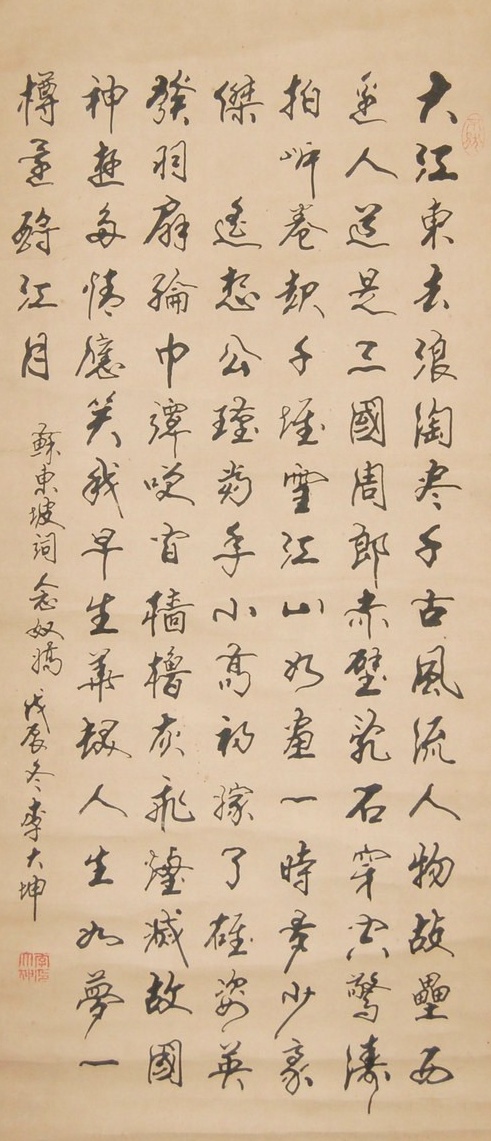 大江東去浪淘尽千古風流人物故壘西
邊人道是三國周郎赤壁亂石穿空驚濤
拍岸卷起千堆雪江山如畫一時多少豪
傑 遙想公瑾當年小喬初嫁了雄姿英
發羽扇綸巾譚笑間檣櫓灰飛煙滅故國
神遊多情應笑我早生華髮人生如夢一
樽還酹江月
蘇東坡詞 念奴嬌 戊辰冬李大坤